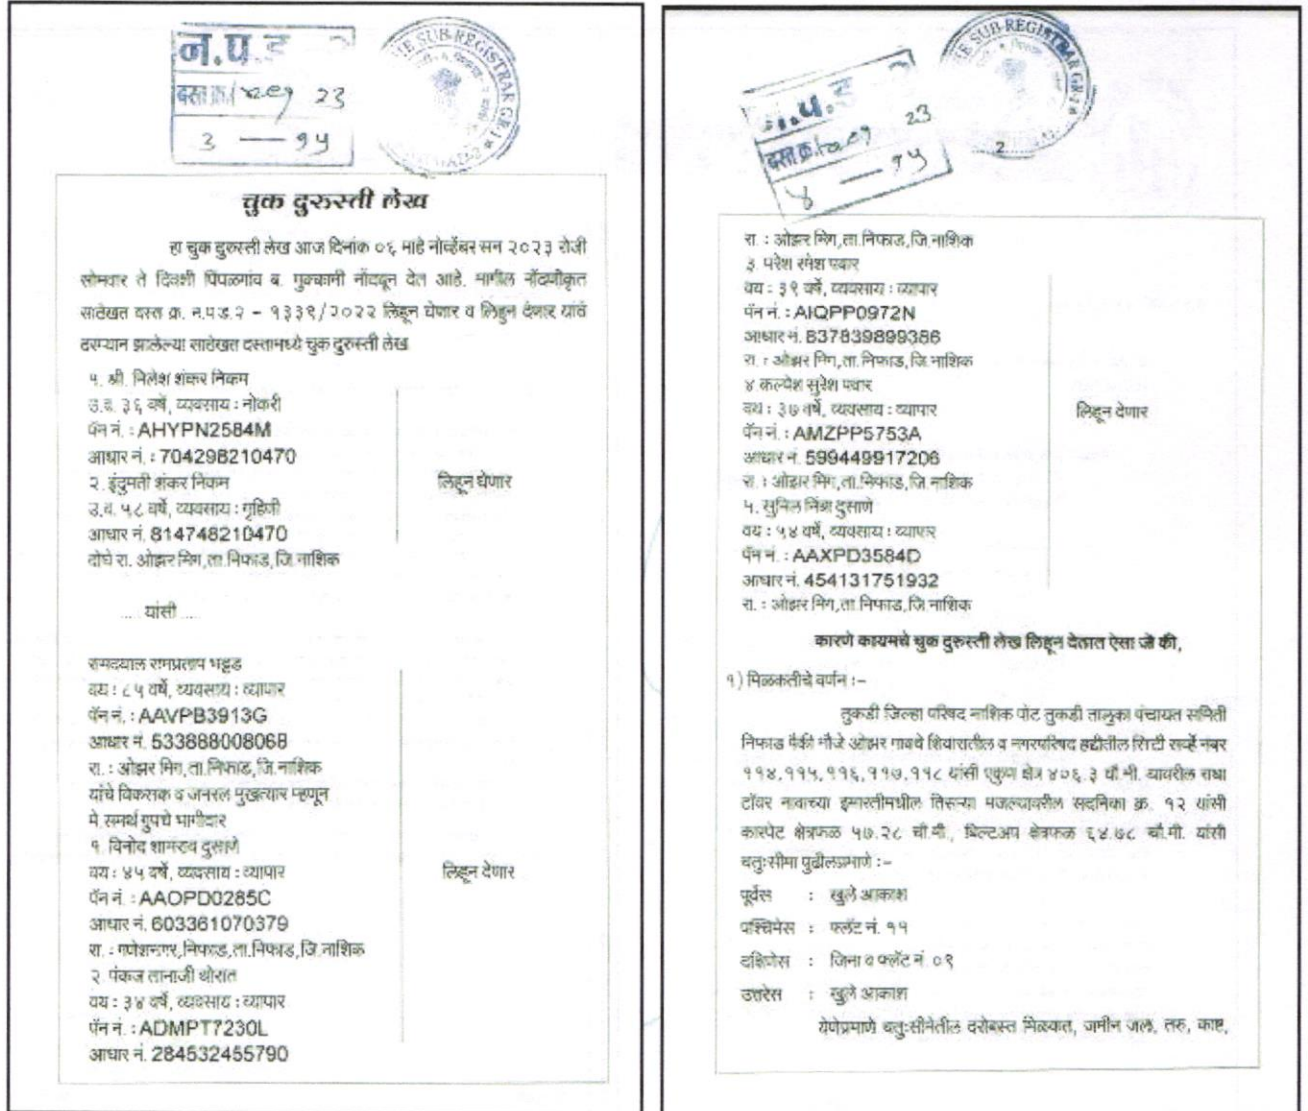 न.प.ड
दस्त क्र.
23
3 — 94
SUB-REGISTRAR GR-1
चुक दुरुस्ती लेख
हा चुक दुरुस्ती लेख आज दिनांक ०६ माहे नोव्हेंबर सन २०२३ रोजी
सोमवार ते दिवशी पिंपळगांव ब. मुक्कामी नोंदवून देत आहे. मागील नोंदणीकृत
साठेखत दस्त क्र. न.प.ड.२ - १३३९/२०२२ लिहून घेणार व लिहुन देणार यांचे
दरम्यान झालेल्या साठेखत दस्तामध्ये चुक दुरुस्ती लेख
१. श्री. निलेश शंकर निकम
उ.व. ३६ वर्षे, व्यवसाय : नोकरी
पॅन नं. : AHYPN2584M
आधार नं. : 704298210470
२. इंदुमती शंकर निकम
लिहून घेणार
उ.व. ५८ वर्षे, व्यवसाय : गृहिणी
आधार नं. 814748210470
दोघे रा. ओझर मिग,ता.निफाड,जि.नाशिक
..... यांसी .....
रामदयाल रामप्रताप भट्टड
वय : ८५ वर्षे, व्यवसाय : व्यापार
पॅन नं. : AAVPB3913G
आधार नं. 533888008068
रा. : ओझर मिग,ता.निफाड,जि.नाशिक
यांचे विकसक व जनरल मुखत्यार म्हणून
मे.समर्थ ग्रुपचे भागीदार
१. विनोद शामराव दुसाणे
वय : ४५ वर्षे, व्यवसाय : व्यापार
लिहून देणार
पॅन नं. : AAOPD0285C
आधार नं. 603361070379
रा. : गणेशनगर,निफाड,ता.निफाड,जि.नाशिक
२. पंकज तानाजी थोरात
वय : ३४ वर्षे, व्यवसाय : व्यापार
पॅन नं. : ADMPT7230L
आधार नं. 284532455790
न.प.ड
दस्त क्र.
23
४ — 94
SUB-REGISTRAR GR-1
2
रा. : ओझर मिग,ता.निफाड,जि.नाशिक
३. परेश रमेश पवार
वय : ३९ वर्षे, व्यवसाय : व्यापार
पॅन नं. : AIQPP0972N
आधार नं. 837839899386
रा. : ओझर मिग,ता.निफाड,जि.नाशिक
४.कल्पेश सुरेश पवार
वय : ३७ वर्षे, व्यवसाय : व्यापार
लिहून देणार
पॅन नं. : AMZPP5753A
आधार नं. 599449917206
रा. : ओझर मिग,ता.निफाड,जि.नाशिक
५. सुनिल निंबा दुसाणे
वय : ५४ वर्षे, व्यवसाय : व्यापार
पॅन नं. : AAXPD3584D
आधार नं. 454131751932
रा. : ओझर मिग,ता.निफाड,जि.नाशिक
कारणे कायमचे चुक दुरुस्ती लेख लिहून देतात ऐसा जे की,
१) मिळकतीचे वर्णन :-
तुकडी जिल्हा परिषद नाशिक पोट तुकडी तालुका पंचायत समिती
निफाड पैकी मौजे ओझर गावचे शिवारातील व नगरपरिषद हद्दीतील सिटी सर्व्हे नंबर
११४,११५,११६,११७,११८ यांसी एकुण क्षेत्र ४०६.३ चौ.मी. यावरील राधा
टॉवर नावाच्या इमारतीमधील तिसऱ्या मजल्यावरील सदनिका क्र. १२ यांसी
कारपेट क्षेत्रफळ ५७.२८ चौ.मी., बिल्टअप क्षेत्रफळ ६४.७८ चौ.मी. यांसी
चतुःसीमा पुढीलप्रमाणे :-
पूर्वेस : खुले आकाश
पश्चिमेस : फ्लॅट नं. ११
दक्षिणेस : जिना व फ्लॅट नं. ०९
उत्तरेस : खुले आकाश
येणेप्रमाणे चतुःसीमेतील दरोबस्त मिळकत, जमीन जल, तरु, काष्ट,